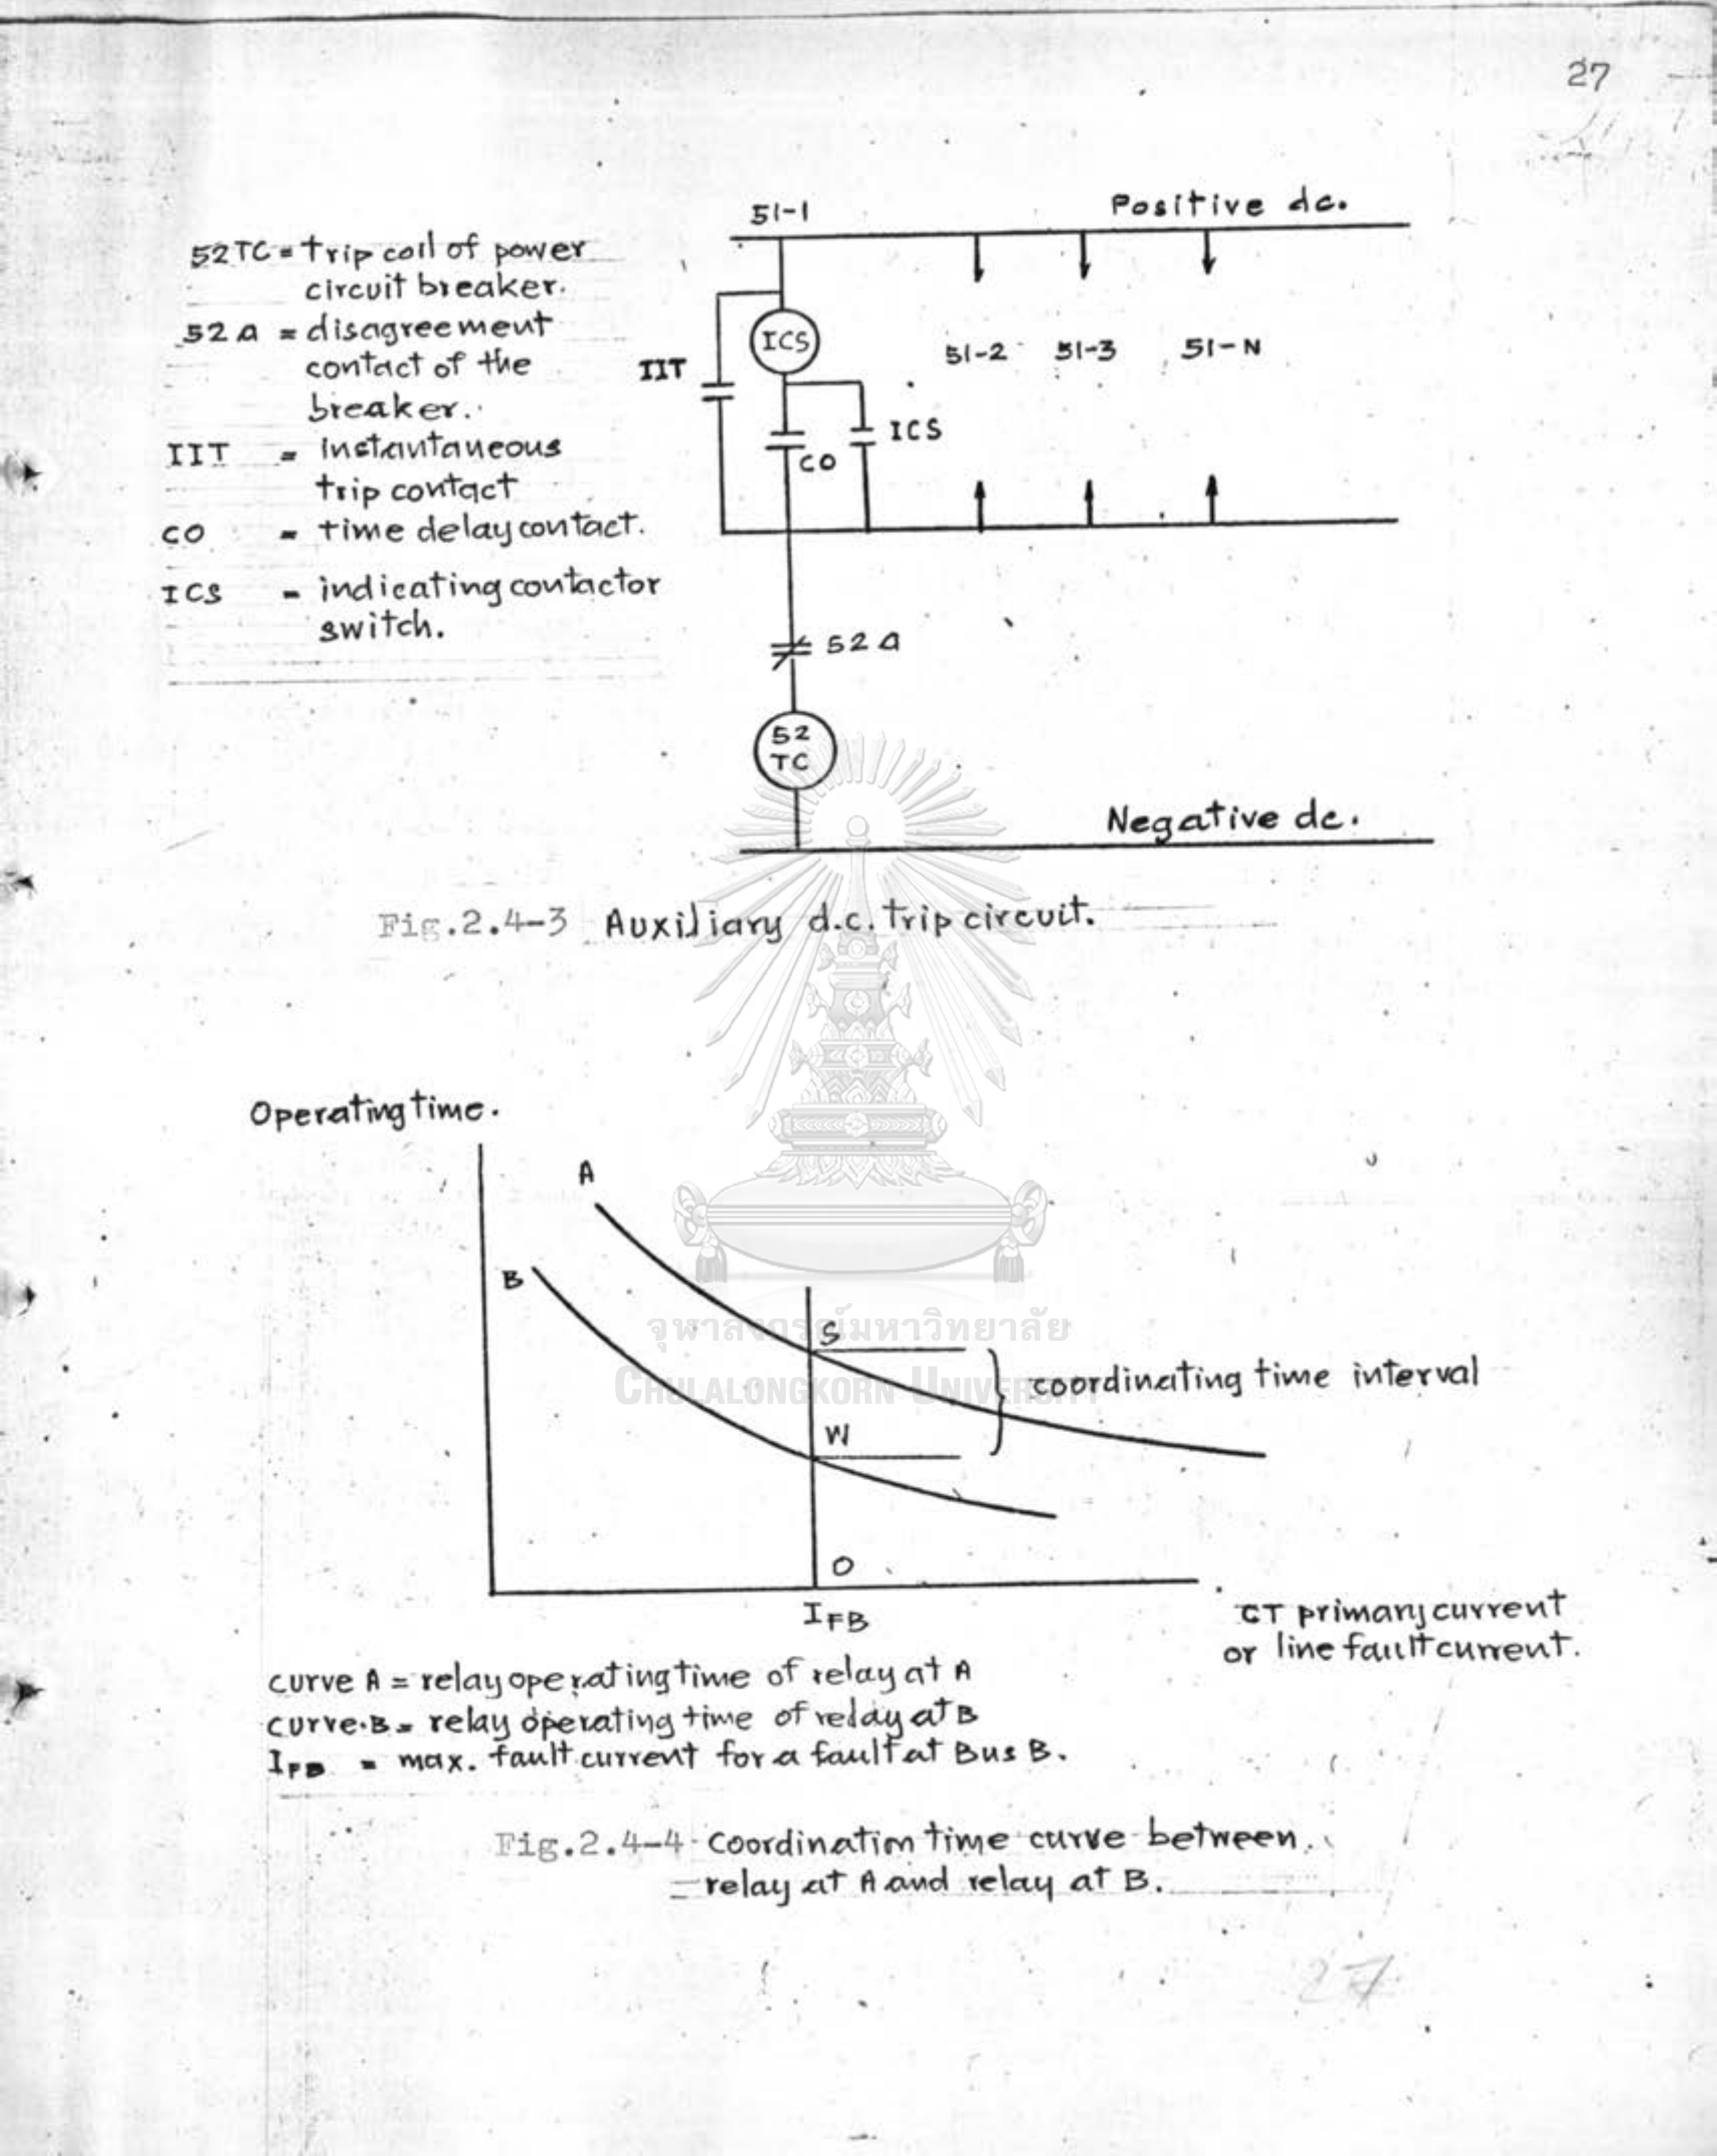 27
51-1
Positive dc.
52TC = trip coil of power
circuit breaker.
52a = disagreement
contact of the
breaker.
IIT = Instantaneous
trip contact
CO = time delay contact.
ICS = indicating contactor
switch.
ICS
IIT
51-2 51-3 51-N
ICS
CO
52a
52
TC
Negative dc.
Fig.2.4-3 Auxiliary d.c. trip circuit.
Operating time.
A
B
S
จุฬาลงกรณ์มหาวิทยาลัย
CHULALONGKORN UNIVERSITY
coordinating time interval
W
O
IFB
CT primary current
or line fault current.
curve A = relay operating time of relay at A
curve B = relay operating time of relay at B
IFB = max. fault current for a fault at Bus B.
Fig.2.4-4 Coordination time curve between
relay at A and relay at B.
27